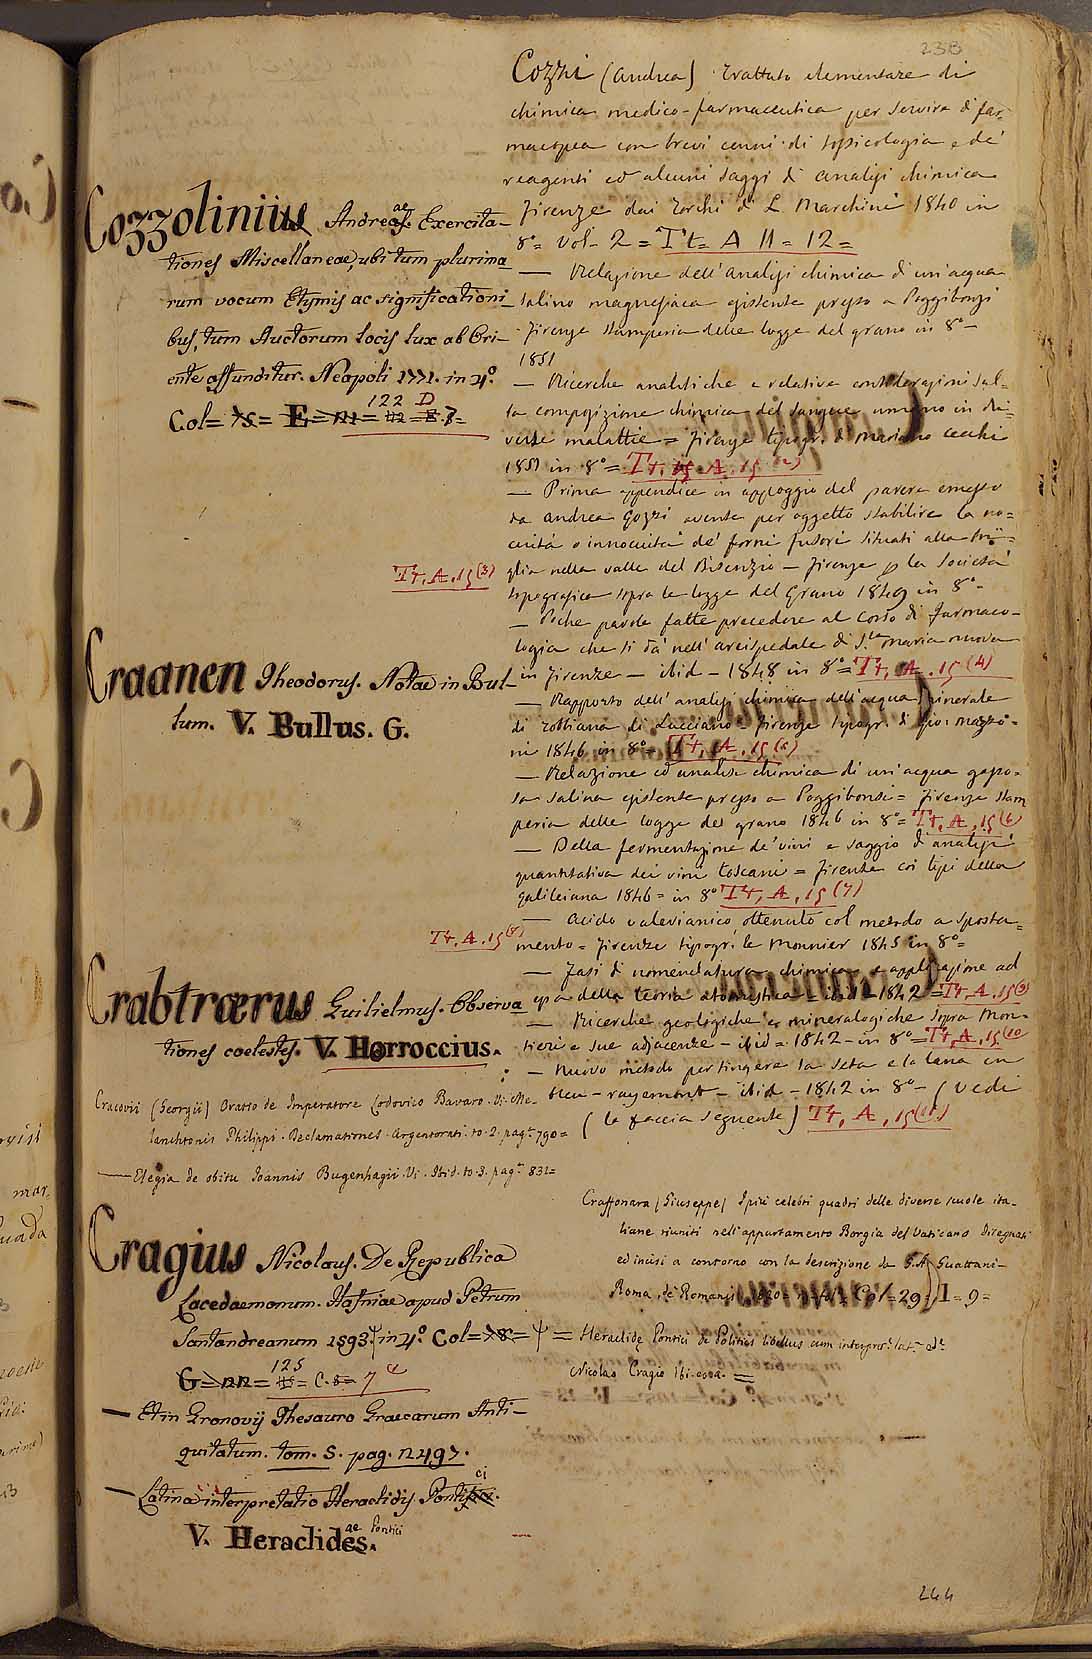 238
Cozzoliniis Andreae Exercita-
tiones Miscellaneae, ubi tum plurima
rum vocum Etymis ac significationi-
bus, tum Auctorum locis lux ab Ori-
ente affunditur. Neapoli 1771. in 4.°
Col=
122 D
7=
Tt. A. 15 (3)
Craanen Theodorus. Notae in Bul-
lum. V. Bullus. G.
Tt. A. 15 (8)
Crabtrærus Guilielmus. Observa
tiones coelestes. V. Horroccius.
Cracovii (Georgii) Oratio de Imperatore Lodovico Bavaro. V. Me-
lanchtonis Philippi. Declamationes. Argentorati. to. 2. pag. 790=
— Elegia de obitu Ioannis Bugenhagii. V. Ibid. to. 3. pag. 832=
Cragius Nicolaus. De Republica
Lacedaemonum. Hafniae apud Petrum
Santandreanum 1593. in 4.° Col=
125
7
— Et in Gronovij Thesauro Graecarum Anti-
quitatum. tom. 5. pag. 2497.
— Latina interpretatio Heraclidis Pontici
V. Heraclidae Pontici
Cozzi (Andrea) Trattato elementare di
chimica medico-farmaceutica per servire di far-
macopea con brevi cenni di tossicologia e de'
reagenti ed alcuni saggi di analisi chimica
Firenze dai torchi di L. Marchini 1840 in
8°= Vol- 2 = Tt= A 11 = 12 =
— Relazione dell'analisi chimica di un'acqua
salino magnesiaca esistente presso a Poggibonsi
Firenze stamperia delle logge del grano in 8°-
1851
— Ricerche analitiche e relative considerazioni sul-
la composizione chimica del sangue umano in di-
verse malattie = Firenze tipogr. di Mariano Cecchi
1851 in 8°= Tt. A. 15 (2)
— Prima appendice in appoggio del parere emesso
da Andrea Cozzi avente per oggetto stabilire la no=
cuità o innocuità de' forni fusori situati alla Bri-
glia nella valle del Bisenzio — Firenze p. la Società
tipografica sopra le logge del Grano 1849 in 8°-
— Poche parole fatte precedere al Corso di Farmaco-
logia che si dà nell'arcispedale di S.ta Maria nuova
in Firenze — ibid — 1848 in 8°= Tt. A. 15 (4)
— Rapporto dell'analisi chimica dell'acqua minerale
di di Lucciano = Firenze tipogr. di Gio: Mazzo-
ni 1846 in 8°= Tt. A. 15 (5)
— Relazione ed analisi chimica di un'acqua gaso=
sa salina esistente presso a Poggibonsi = Firenze stam
peria delle logge del grano 1846 in 8°= Tt. A. 15 (6)
— Della fermentazione de' vini e saggio d'analisi
quantitativa dei vini toscani = Firenze coi tipi della
galileiana 1846= in 8° Tt. A. 15 (7)
— Acido valerianico ottenuto col metodo a sposta=
mento = Firenze tipogr. le Monnier 1845 in 8°=
— Fasi di nomenclatura chimica e applicazione ad
essa della teoria atomistica = ibid = 1842 = Tt. A. 15 (9)
— Ricerche geologiche e mineralogiche sopra Mon-
tieri e sue adjacenze — ibid = 1842 - in 8°= Tt. A. 15 (10
— Nuovo metodo per tingere la seta e la lana in
bleu - raymont - ibid - 1842 in 8° - (Vedi
(la faccia seguente) Tt. A. 15 (11)
Craffonara (Giuseppe) I più celebri quadri delle diverse scuole ita-
liane riuniti nell'appartamento Borgia del Vaticano disegnati
ed incisi a contorno con la descrizione da G. A. Guattani-
Roma, de Romanis 1820= Col= 29= I= 9=
= Heraclidę Pontici de Politiis libellus cum interpret. lat. ed.
Nicolao Cragio Ibi-
244